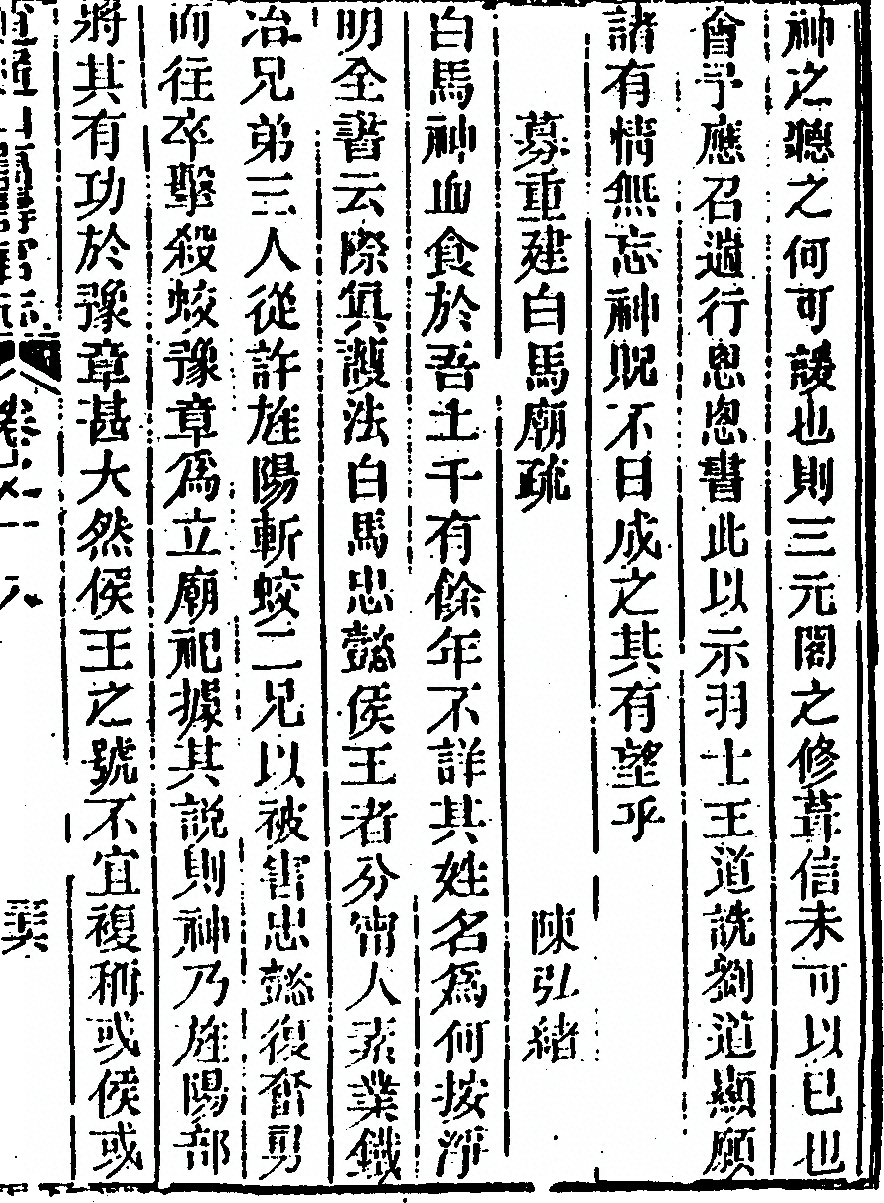 神之聽之何可諼也則三元閣之修葺信未可以已也
會予應召遄行悤悤書此以示羽士王道詵劉道顯願
諸有情無忘神貺不日成之其有望乎
募重建白馬廟疏 陳弘緒
白馬神血食於吾土千有餘年不詳其姓名爲何按淨
明全書云際真護法白馬忠懿侯王者分甯人素業鐵
冶兄弟三人從許旌陽斬蛟二兄以被害忠懿復奮勇
而往卒擊殺蛟豫章爲立廟祀據其説則神乃旌陽部
將其有功於豫章甚大然侯王之號不宜複稱或侯或
卷之一